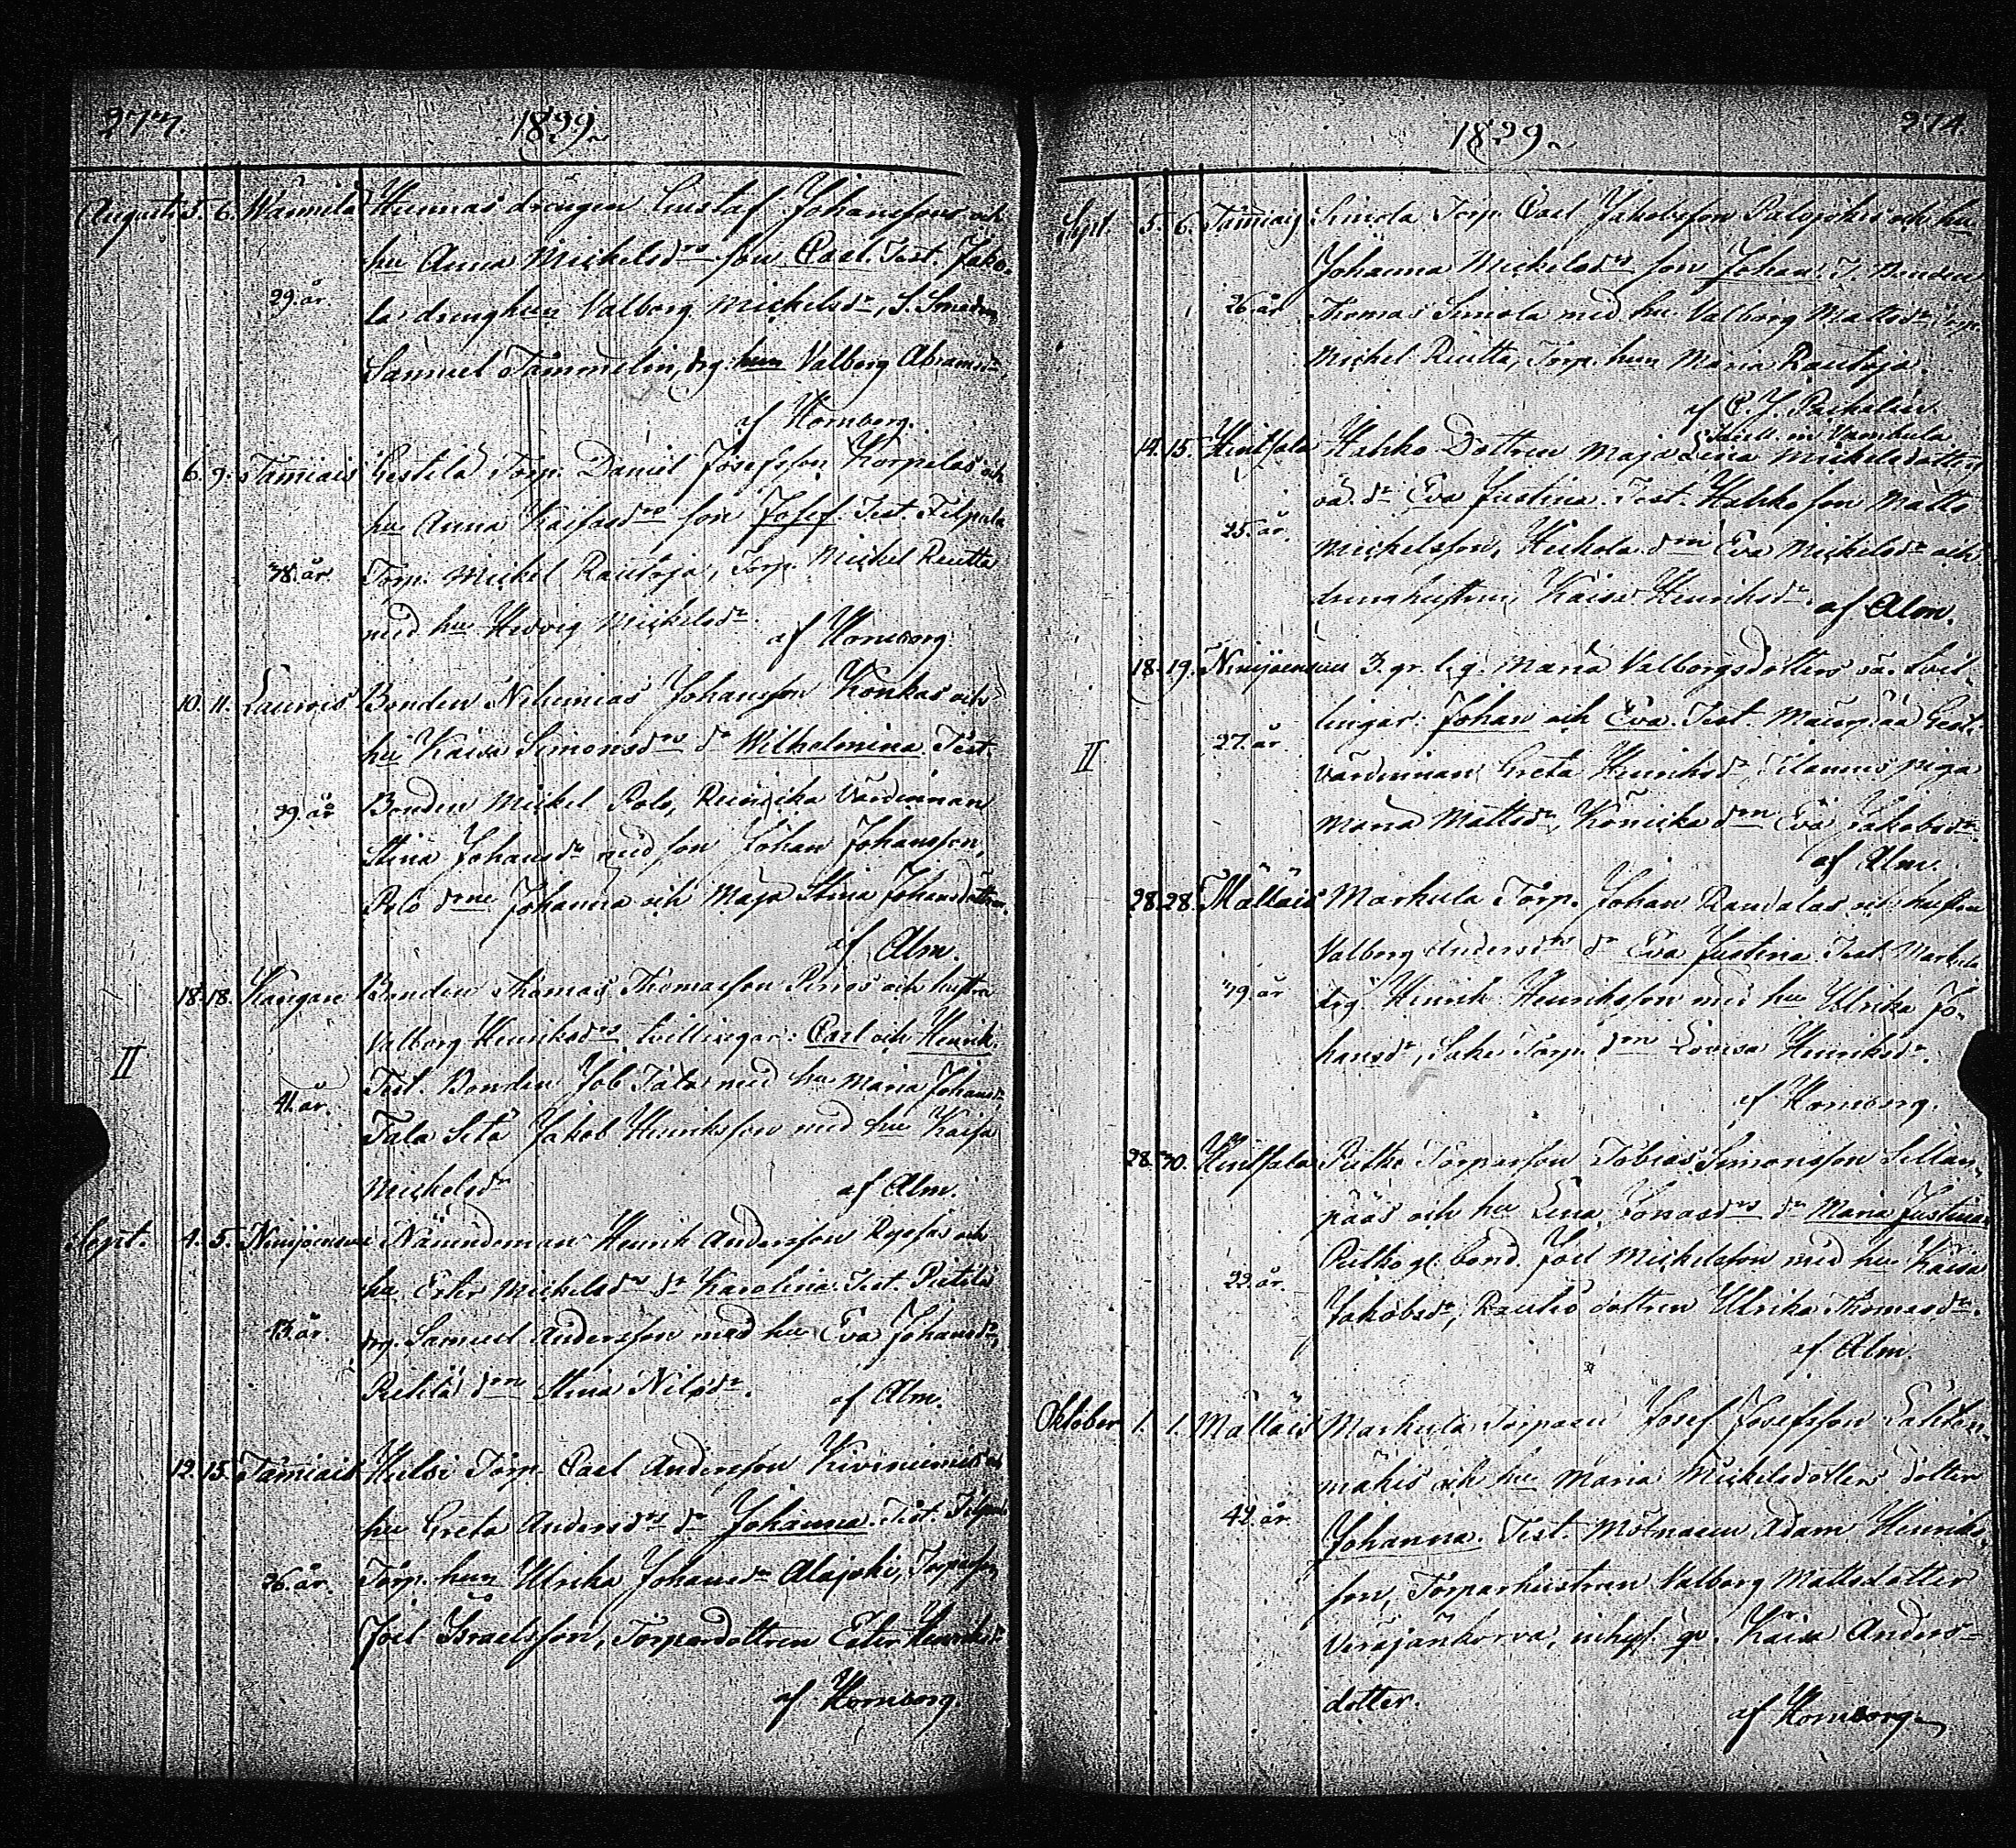 277.
1829.
Augusti 5. 6. Wännilä Hunnas drängen Gustaf Johanssons och
hu Anna Mickelsdrs son Carl. Test. Jako-
29. år. la dräng hun Valborg Mickelsdr, S. Smeden
Samuel Tammelin, drg. hun Valborg Abramsdr
af Hornborg.
6. 9. Tammiais Gestilä Torp. Daniel Josefsson Korpelas och
hu Anna Kaisasdrs son Josef. Test. Filpula
38. år Torp. Mickel Rautoja, Torp. Mickel Reutta
med hu Hedvig Mickelsdr.
af Hornborg
10. 11. Laurois Bonden Nehemias Johansson Konkas och
hu Kaisa Simonsdrs dr Wilhelmina. Test.
39. år Bonden Mickel Polo, Värdinnan
Stina Johansdr med son Johan Johansson,
Polo drne Johanna och Maja Stina Johansdöttrar.
af Alm.
18. 18. Kangare Bonden Thomas Thomasson Penos och hustru
II Valborg Henriksdrs tvillingar: Carl och Henrik.
41. år. Test. Bonden Job Tala med hu Maria Johansdr
Tala Sytn. Jakob Henriksson med hu Kaisa
Mickelsdr
af Alm.
Sept. 4. 5. Ninijoensuu Nämndeman Henrik Andersson Ryssäs och
hu Ester Mickelsdrs dr Karolina. Test. Pietilä
43. år. drg. Samuel Andersson med hu Eva Johansdr,
Pietilä drn Stina Nilsdr.
af Alm.
12. 15. Tammiais Heulsi Torp. Carl Andersson Kiviniemis och
hu Greta Andersdrs dr Johanna. Test.
26. år. Torp. hun Ulrika Johansdr Alajoki, Torpson
Joel Israelsson, Torpardottren Ester Henriksdr
af Hornborg.
274
1829.
Sept. 5. 6. Tammiais Simola Torp. Carl Jakobsson Palojokis och hu
Johanna Mickelsdrs son Johan. T. Bonden
26. år Thomas Simola med hu Valborg Mattsdr Torp.
Mickel Reutta, Torp. hun Maria Rautoja.
af C. J. Pachalén.
14. 15. Hintsala Hahko Dottren Maja Lena Mickelsdotters
oä. dr. Eva Justina. Test. Hahko son Matts
25. år. Mickelsson, Heikola drn Eva Mickelsdr och
drenghustrun Kaisa Henriksdr. af Alm.
18. 19. Ninijoensuu 3. gr. l. q. Maria Valborgsdotters oä. tvil-
II lingar: Johan och Eva. Test. Maunpää Gest.
27. år värdinnan Greta Henriksdr, Tilanus piga
Maria Mattsdr, Könicka drn Eva Jakobsdr.
af Alm.
28. 28. Mälläis Markula Torp. Johan Randalas och hustru
Valborg Andersdrs dr Eva Justina. Test. Markula
39. år drg. Henrik Henriksson med hu Ulrika Jo-
hansdr, Torp. drn Lovisa Henriksdr.
af Hornborg.
28. 30. Hintsala Piitke Torparson Tobias Simonsson Sillan-
pääs och hu Lena Jonasdrs dr Maria Justina.
22. år. Piitko gl. bond. Joel Mickelsson med hu Kaisa
Jakobsdr, Rautio dottren Ulrika Thomasdr.
af Alm.
Oktober 1. 1. Mälläis Markula Torparen Josef Josefsson Lahden-
mäkis och hu Maria Mickelsdotters dotter
42. år. Johanna. Test. Mölnaren Adam Henriks-
son, Torparhustrun Valborg Mattsdotter
Veräjänkorva, inhys. qv. Kaisa Anders-
dotter.
af Hornborg.